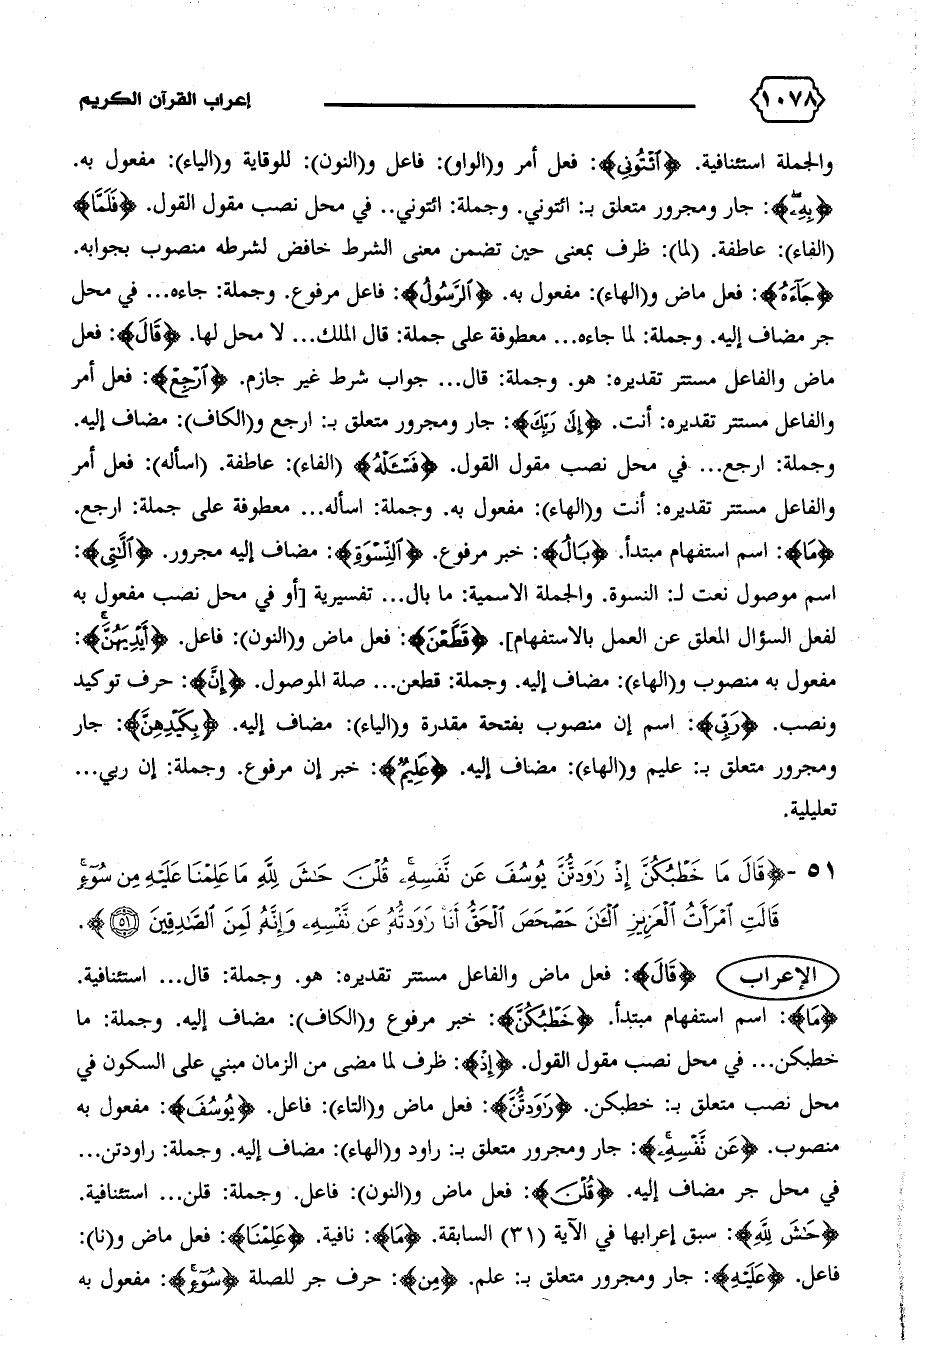 ١٠٧٨ إعراب القرآن الكريم
والجملة استئنافية. ﴿ٱئْتُونِي﴾: فعل أمر و(الواو): فاعل و(النون): للوقاية و(الياء): مفعول به.
﴿بِهِۦ﴾: جار ومجرور متعلق بـ: ائتوني. وجملة: ائتوني.. في محل نصب مقول القول. ﴿فَلَمَّا﴾
(الفاء): عاطفة. (لما): ظرف بمعنى حين تضمن معنى الشرط خافض لشرطه منصوب بجوابه.
﴿جَآءَهُ﴾: فعل ماض و(الهاء): مفعول به. ﴿ٱلرَّسُولُ﴾: فاعل مرفوع. وجملة: جاءه... في محل
جر مضاف إليه. وجملة: لما جاءه... معطوفة على جملة: قال الملك... لا محل لها. ﴿قَالَ﴾: فعل
ماض والفاعل مستتر تقديره: هو. وجملة: قال... جواب شرط غير جازم. ﴿ٱرْجِعْ﴾: فعل أمر
والفاعل مستتر تقديره: أنت. ﴿إِلَىٰ رَبِّكَ﴾: جار ومجرور متعلق بـ: ارجع و(الكاف): مضاف إليه.
وجملة: ارجع... في محل نصب مقول القول. ﴿فَسْـَٔلْهُ﴾ (الفاء): عاطفة. (اسأله): فعل أمر
والفاعل مستتر تقديره: أنت و(الهاء): مفعول به. وجملة: اسأله... معطوفة على جملة: ارجع.
﴿مَا﴾: اسم استفهام مبتدأ. ﴿بَالُ﴾: خبر مرفوع. ﴿ٱلنِّسْوَةِ﴾: مضاف إليه مجرور. ﴿ٱلَّٰتِي﴾:
اسم موصول نعت لـ: النسوة. والجملة الاسمية: ما بال... تفسيرية [أو في محل نصب مفعول به
لفعل السؤال المعلق عن العمل بالاستفهام]. ﴿قَطَّعْنَ﴾: فعل ماض و(النون): فاعل. ﴿أَيْدِيَهُنَّۚ﴾:
مفعول به منصوب و(الهاء): مضاف إليه. وجملة: قطعن... صلة الموصول. ﴿إِنَّ﴾: حرف توكيد
ونصب. ﴿رَبِّي﴾: اسم إن منصوب بفتحة مقدرة و(الياء): مضاف إليه. ﴿بِكَيْدِهِنَّ﴾: جار
ومجرور متعلق بـ: عليم و(الهاء): مضاف إليه. ﴿عَلِيمٌ﴾: خبر إن مرفوع. وجملة: إن ربي...
تعليلية.
٥١ -﴿قَالَ مَا خَطْبُكُنَّ إِذْ رَٰوَدتُّنَّ يُوسُفَ عَن نَّفْسِهِۦۚ قُلْنَ حَٰشَ لِلَّهِ مَا عَلِمْنَا عَلَيْهِ مِن سُوٓءٍۚ
قَالَتِ ٱمْرَأَتُ ٱلْعَزِيزِ ٱلْـَٰٔنَ حَصْحَصَ ٱلْحَقُّ أَنَا۠ رَٰوَدتُّهُۥ عَن نَّفْسِهِۦ وَإِنَّهُۥ لَمِنَ ٱلصَّٰدِقِينَ ٥١﴾.
الإعراب ﴿قَالَ﴾: فعل ماض والفاعل مستتر تقديره: هو. وجملة: قال... استئنافية.
﴿مَا﴾: اسم استفهام مبتدأ. ﴿خَطْبُكُنَّ﴾: خبر مرفوع و(الكاف): مضاف إليه. وجملة: ما
خطبكن... في محل نصب مقول القول. ﴿إِذْ﴾: ظرف لما مضى من الزمان مبني على السكون في
محل نصب متعلق بـ: خطبكن. ﴿رَٰوَدتُّنَّ﴾: فعل ماض و(التاء): فاعل. ﴿يُوسُفَ﴾: مفعول به
منصوب. ﴿عَن نَّفْسِهِۦۚ﴾: جار ومجرور متعلق بـ: راود و(الهاء): مضاف إليه. وجملة: راودتن...
في محل جر مضاف إليه. ﴿قُلْنَ﴾: فعل ماض و(النون): فاعل. وجملة: قلن... استئنافية.
﴿حَٰشَ لِلَّهِ﴾: سبق إعرابها في الآية (٣١) السابقة. ﴿مَا﴾: نافية. ﴿عَلِمْنَا﴾: فعل ماض و(نا):
فاعل. ﴿عَلَيْهِ﴾: جار ومجرور متعلق بـ: علم. ﴿مِن﴾: حرف جر للصلة ﴿سُوٓءٍۚ﴾: مفعول به